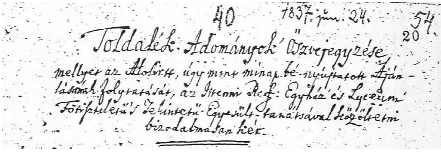 40 1837. jun. 24. 54.
20
Toldalék Adományok Öszvejegyzése,
mellyet az Alólírtt, úgy mint minap bé-nyújtatott Aján-
lásának folytatását, az Ref: Egyház és Lyceum
Főtiszteletű 's Tekintetű Egyesült-tanátsával közöltetni
bizodalmasan kér.